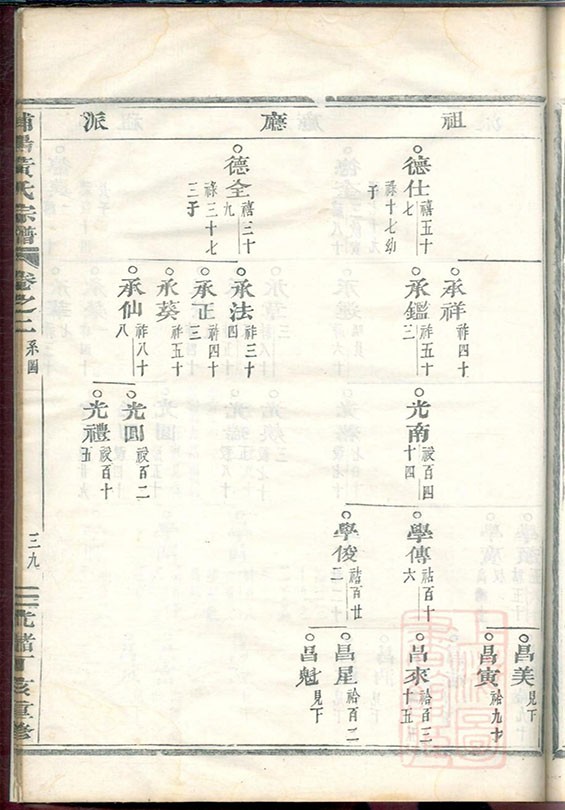 祖廳派
德仕 禧五十七
祿十七幼子
德全 禧三十九
祿三十七三子
承祥 祥四十
承鑑 祥五十三
承法 祥三十四
承正 祥四十三
承葵 祥五十
承仙 祥八十八
光南 祾百四十四
光圓 祾百二
光禮 祾百十五
學傳 祜百十六
學俊 祜百廿二
昌美 見下
昌寅 祫九十
昌來 祫百三十五
昌星 祫百二
昌魁 見下
黃氏宗譜 卷之二 系圖
三九
光緒丁亥重修